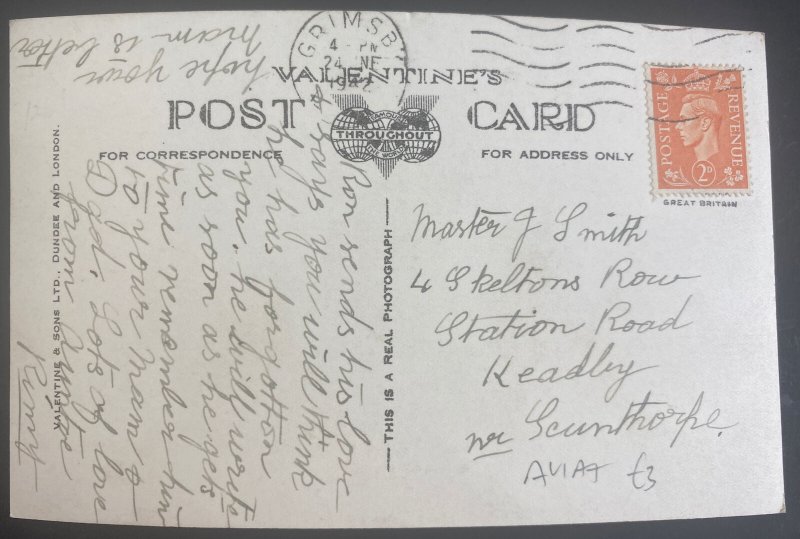 GRIMSB
4 - PM
24 NE
1942
VALENTINE'S
POST CARD
THROUGHOUT
FOR CORRESPONDENCE
FOR ADDRESS ONLY
POSTAGE
REVENUE
2D
GREAT BRITAIN
VALENTINE & SONS LTD., DUNDEE AND LONDON.
THIS IS A REAL PHOTOGRAPH
Ron sends his love
& says you will think
he has forgotten
you. he will write
as soon as he gets
time remember him
to your mam &
Dad. Lots of love
from Auntie
hope your
mam is better
Master J Smith
4 Skeltons Row
Station Road
Keadby
nr Scunthorpe.
AVIAT £3